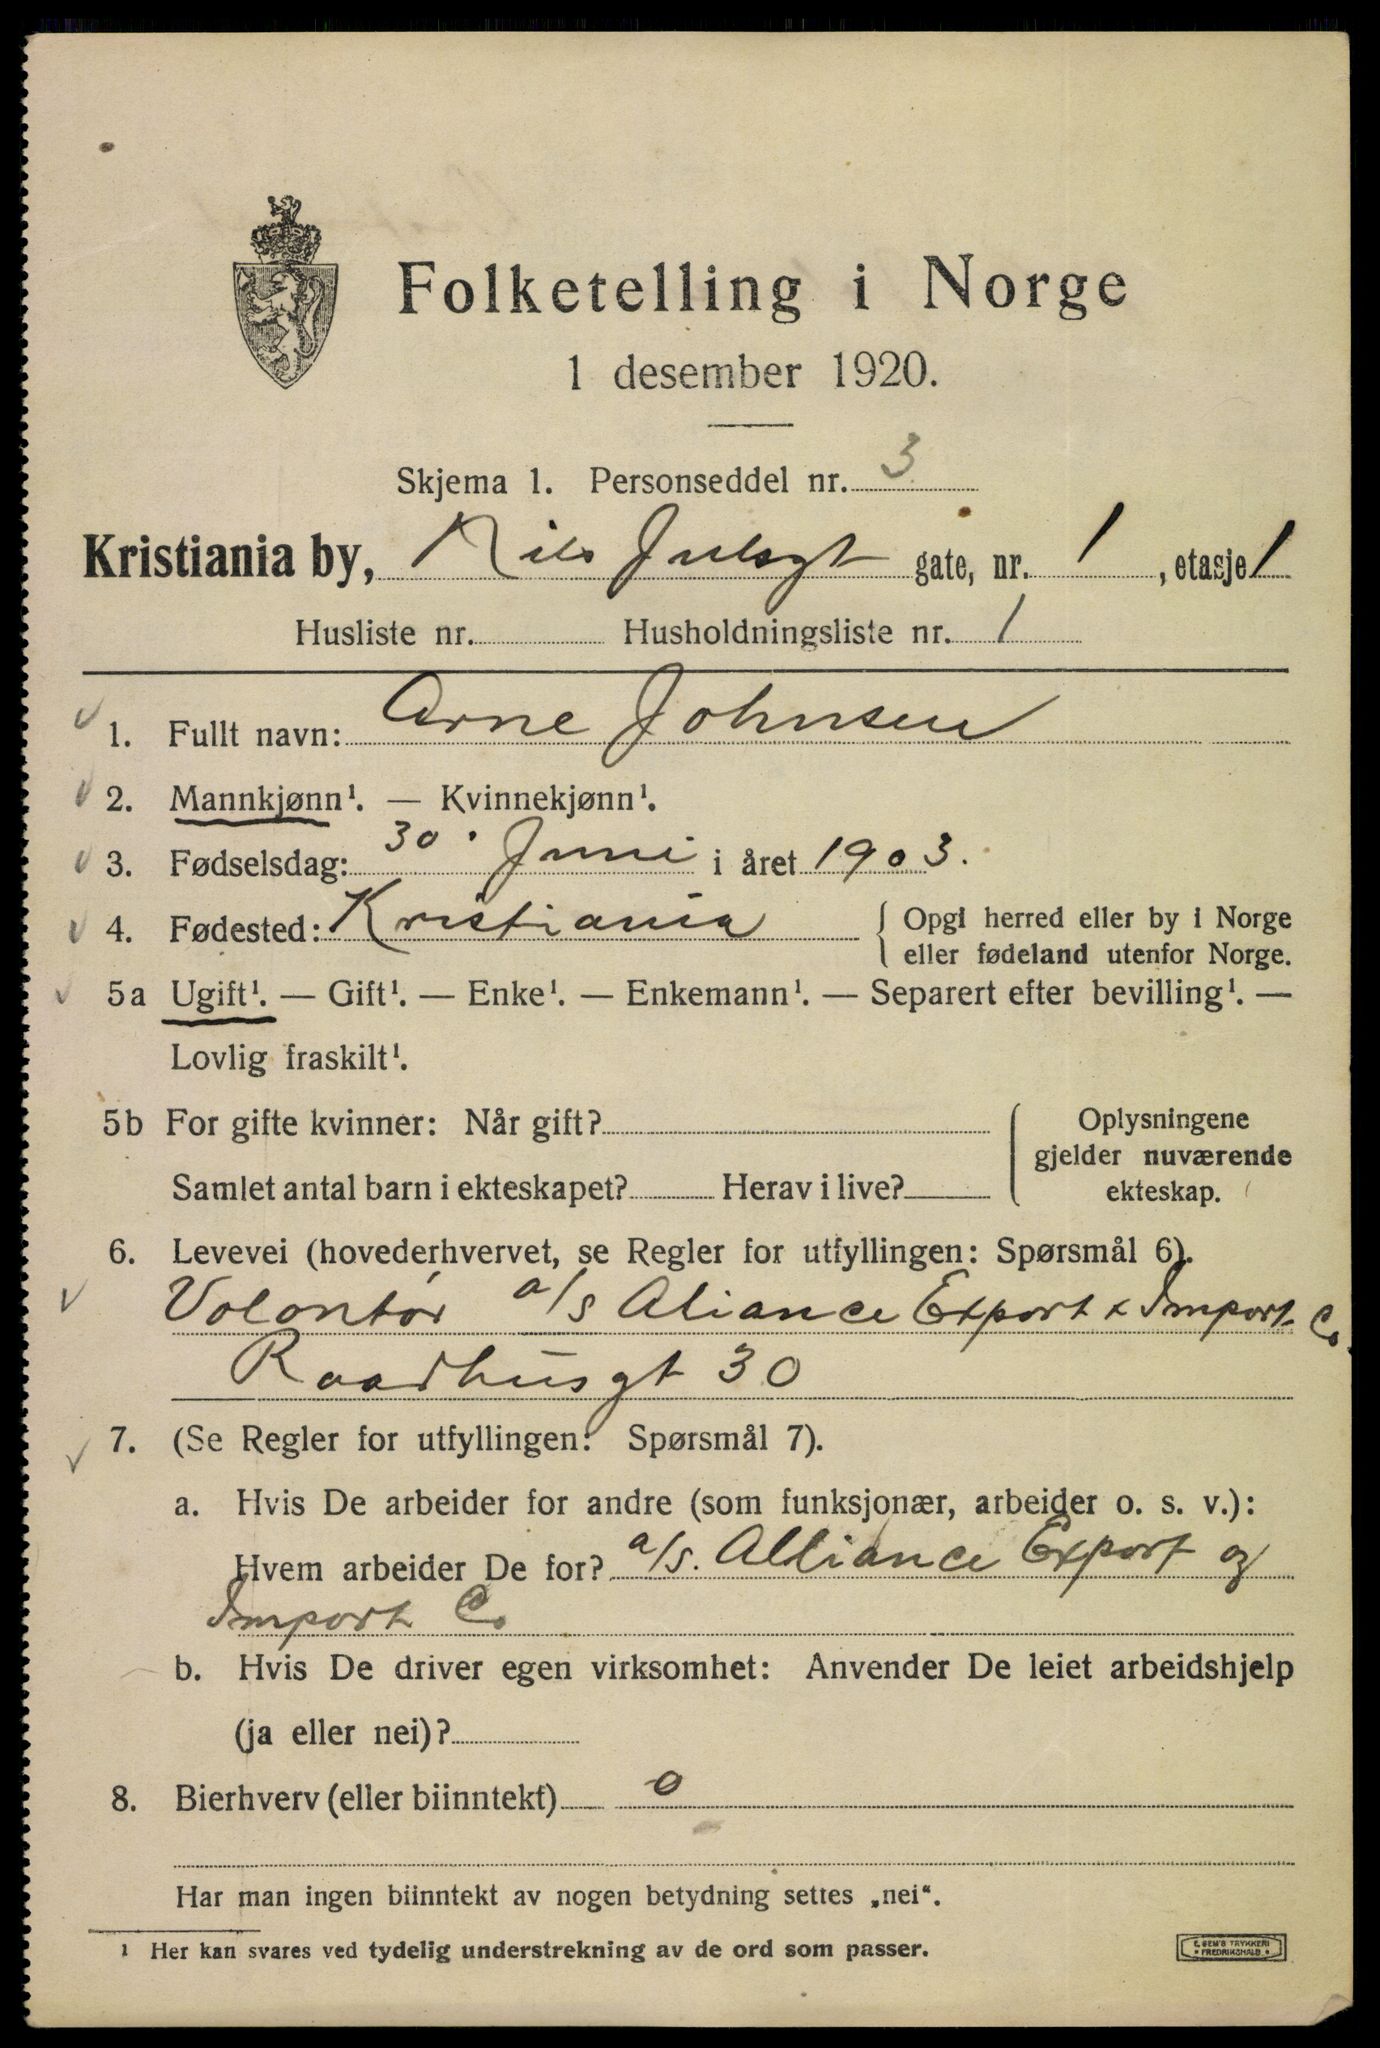 Folketelling i Norge
1 desember 1920.
Skjema 1. Personseddel nr. 3
Kristiania by, Nils Juelsgt gate, nr. 1, etasje 1
Husliste nr. Husholdningsliste nr. 1
1. Fullt navn: Arne Johnsen
2. Mannkjønn¹. — Kvinnekjønn¹.
3. Fødselsdag: 30. Juni i året 1903.
4. Fødested: Kristiania { Opgi herred eller by i Norge
eller fødeland utenfor Norge.
5a Ugift¹. — Gift¹. — Enke¹. — Enkemann¹. — Separert efter bevilling¹. —
Lovlig fraskilt¹.
5b For gifte kvinner: Når gift? Oplysningene
gjelder nuværende
Samlet antal barn i ekteskapet? Herav i live? ekteskap.
6. Levevei (hovederhvervet, se Regler for utfyllingen: Spørsmål 6).
Volontør a/s Aliance Export & Import Co
Raadhusgt 30
7. (Se Regler for utfyllingen: Spørsmål 7).
a. Hvis De arbeider for andre (som funksjonær, arbeider o. s. v.):
Hvem arbeider De for? a/s. Alliance Export og
Import Co
b. Hvis De driver egen virksomhet: Anvender De leiet arbeidshjelp
(ja eller nei)?
8. Bierhverv (eller biinntekt) 0
Har man ingen biinntekt av nogen betydning settes „nei“.
1 Her kan svares ved tydelig understrekning av de ord som passer.
E. SEM'S TRYKKERI
FREDRIKSHALD